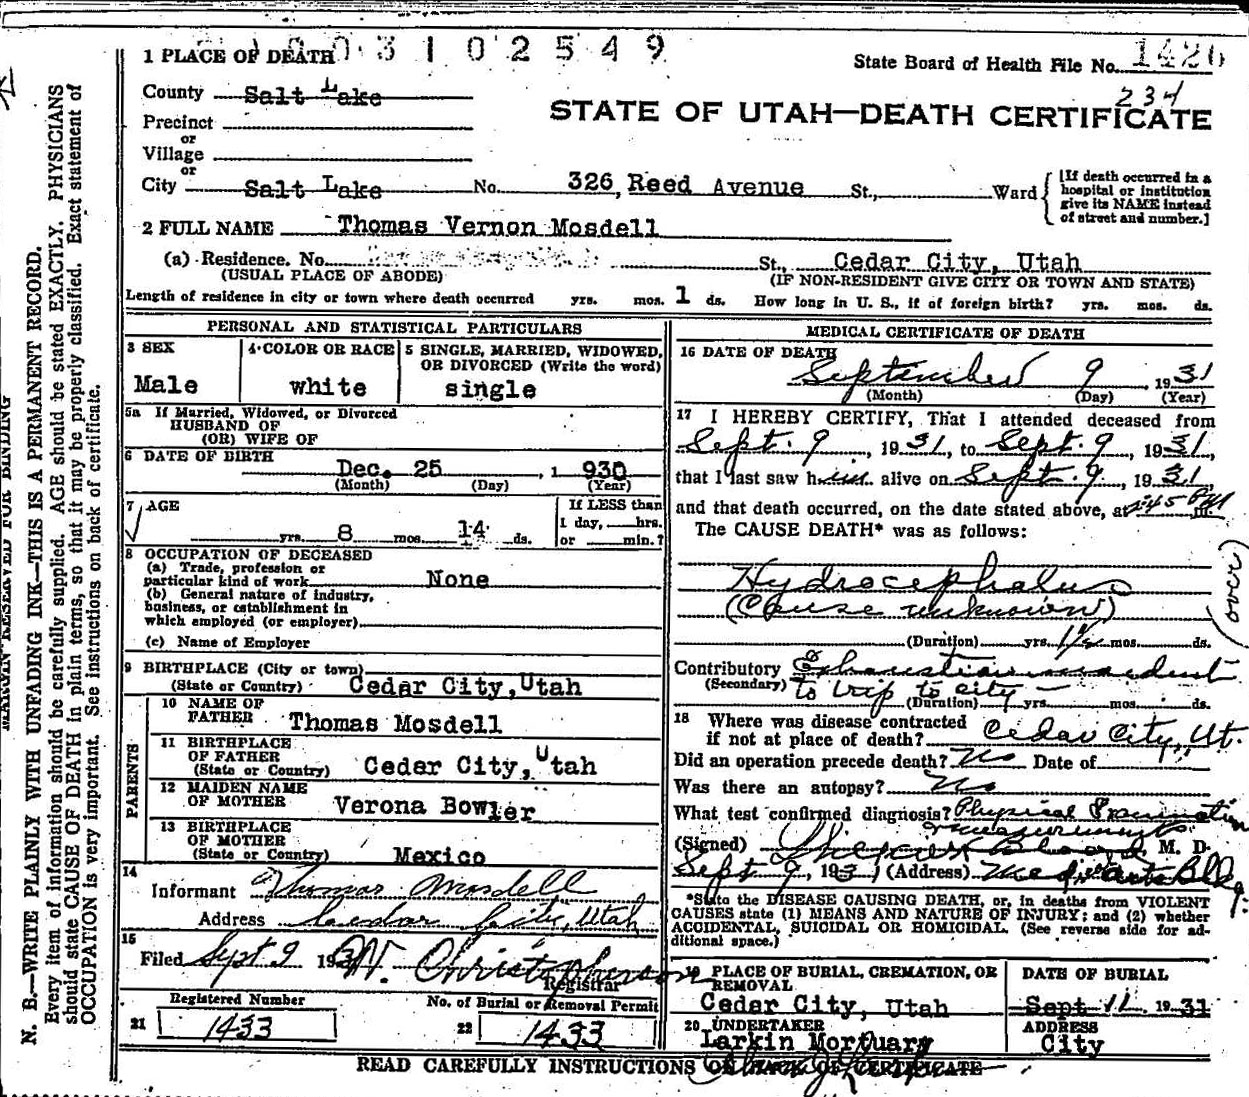 1003102549
1 PLACE OF DEATH
State Board of Health File No. 1426
234
County Salt Lake
STATE OF UTAH—DEATH CERTIFICATE
Precinct
or
Village
or
City Salt Lake No. 326 Reed Avenue St., Ward
[If death occurred in a hospital or institution give its NAME instead of street and number.]
2 FULL NAME Thomas Vernon Mosdell
(a) Residence. No. St., Cedar City, Utah
(USUAL PLACE OF ABODE) (IF NON-RESIDENT GIVE CITY OR TOWN AND STATE)
Length of residence in city or town where death occurred yrs. mos. 1 ds. How long in U. S., if of foreign birth? yrs. mos. ds.
PERSONAL AND STATISTICAL PARTICULARS
3 SEX
Male
4 COLOR OR RACE
white
5 SINGLE, MARRIED, WIDOWED, OR DIVORCED (Write the word)
single
5a If Married, Widowed, or Divorced
HUSBAND OF
(OR) WIFE OF
6 DATE OF BIRTH
Dec. 25, 1930
(Month) (Day) (Year)
7 AGE
yrs. 8 mos. 14 ds.
If LESS than
1 day, hrs.
or min.?
8 OCCUPATION OF DECEASED
(a) Trade, profession or
particular kind of work None
(b) General nature of industry,
business, or establishment in
which employed (or employer)
(c) Name of Employer
9 BIRTHPLACE (City or town)
(State or Country) Cedar City, Utah
PARENTS
10 NAME OF
FATHER Thomas Mosdell
11 BIRTHPLACE
OF FATHER
(State or Country) Cedar City, Utah
12 MAIDEN NAME
OF MOTHER Verona Bowler
13 BIRTHPLACE
OF MOTHER
(State or Country) Mexico
14
Informant Thomas Mosdell
Address Cedar City, Utah
15
Filed Sept 9 193 W. Christopherson
Registrar
Registered Number
21 1433
No. of Burial or Removal Permit
22 1433
MEDICAL CERTIFICATE OF DEATH
16 DATE OF DEATH
September 9, 1931
(Month) (Day) (Year)
17 I HEREBY CERTIFY, That I attended deceased from
Sept. 9, 1931, to Sept. 9, 1931,
that I last saw him alive on Sept. 9, 1931,
and that death occurred, on the date stated above, at 2:45 PM m.
The CAUSE DEATH* was as follows:
Hydrocephalus
(Cause unknown)
(over)
(Duration) yrs. mos. ds.
Contributory Exhaustion incident
(Secondary) to trip to city —
(Duration) yrs. mos. ds.
18 Where was disease contracted
if not at place of death? Cedar City, Ut.
Did an operation precede death? No Date of
Was there an autopsy? No
What test confirmed diagnosis? Physical Examination
measurements
(Signed) M. D.
Sept 9, 1931 (Address) Med. Arts Bldg.
*State the DISEASE CAUSING DEATH, or, in deaths from VIOLENT
CAUSES state (1) MEANS AND NATURE OF INJURY; and (2) whether
ACCIDENTAL, SUICIDAL OR HOMICIDAL. (See reverse side for ad-
ditional space.)
19 PLACE OF BURIAL, CREMATION, OR
REMOVAL
Cedar City, Utah
DATE OF BURIAL
Sept 11, 1931
20 UNDERTAKER
Larkin Mortuary
ADDRESS
City
READ CAREFULLY INSTRUCTIONS ON BACK OF CERTIFICATE
MARGIN RESERVED FOR BINDING
N. B.—WRITE PLAINLY WITH UNFADING INK—THIS IS A PERMANENT RECORD.
Every item of information should be carefully supplied. AGE should be stated EXACTLY. PHYSICIANS
should state CAUSE OF DEATH in plain terms, so that it may be properly classified. Exact statement of
OCCUPATION is very important. See instructions on back of certificate.